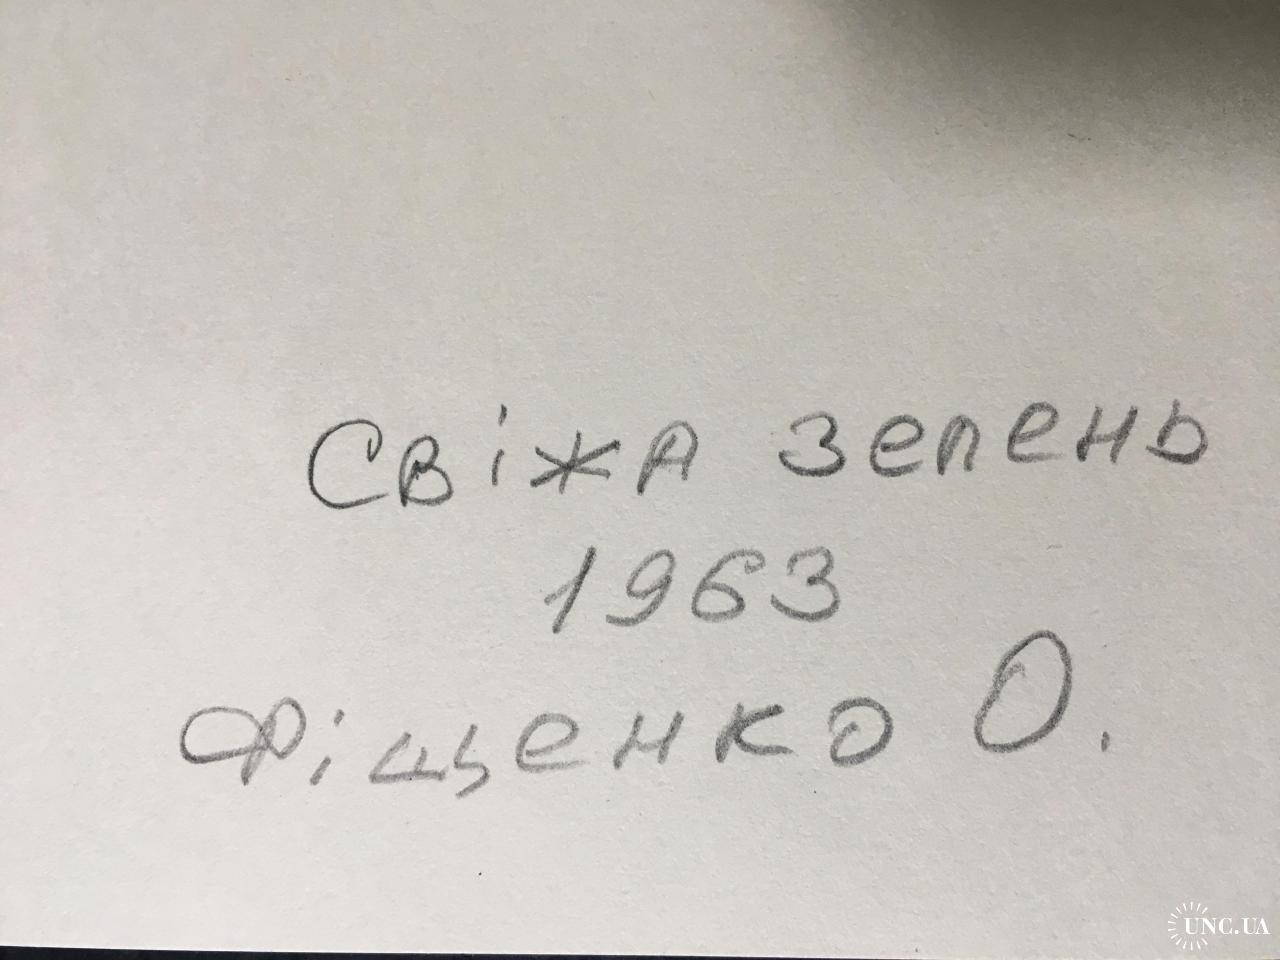 Свіжа зелень
1963
Фіщенко О.
UNC.UA